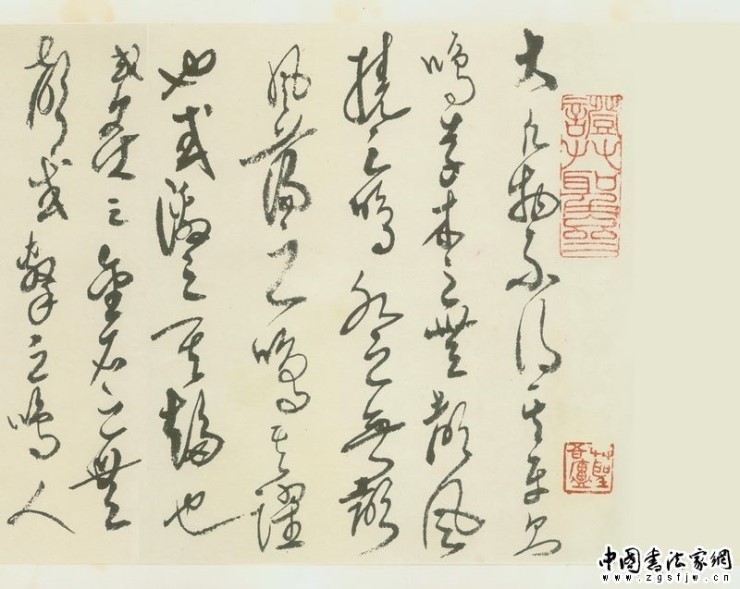 大凡物不得其平則
鳴草木之無聲風
撓之鳴水之無聲
風蕩之鳴其躍
也或激之其趨也
或梗之金石之無
聲或擊之鳴人
中国書法家網
www.zgsfjw.cn